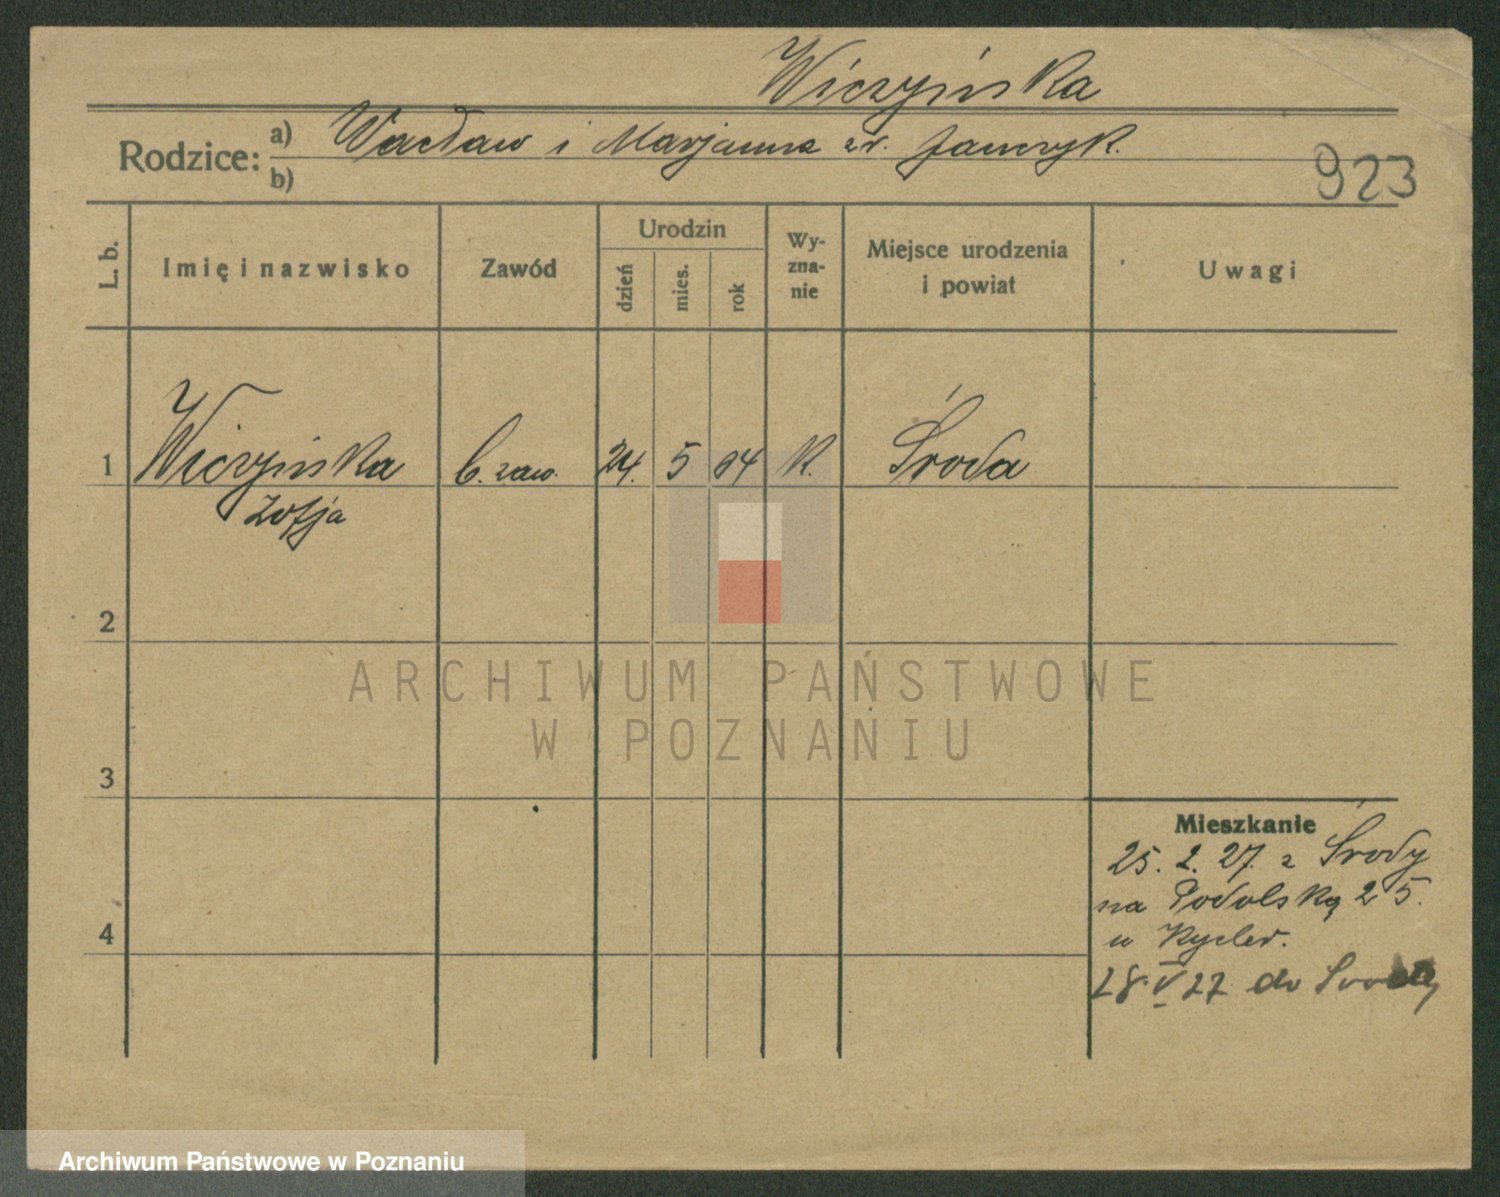 Wiczyńska
Rodzice: a) Wacław i Marjanna zr. Janczyk.
b)
923
L. b.
Imię i nazwisko
Zawód
Urodzin
dzień
mies.
rok
Wy-
zna-
nie
Miejsce urodzenia
i powiat
Uwagi
1 Wiczyńska b. zaw. 24. 5 04 K. Środa
Zofja
2
3
4
ARCHIWUM PAŃSTWOWE
W POZNANIU
Mieszkanie
25. 2. 27. z Środy
na Podolską 25.
u Kycler.
28. V 27 do Środy
Archiwum Państwowe w Poznaniu